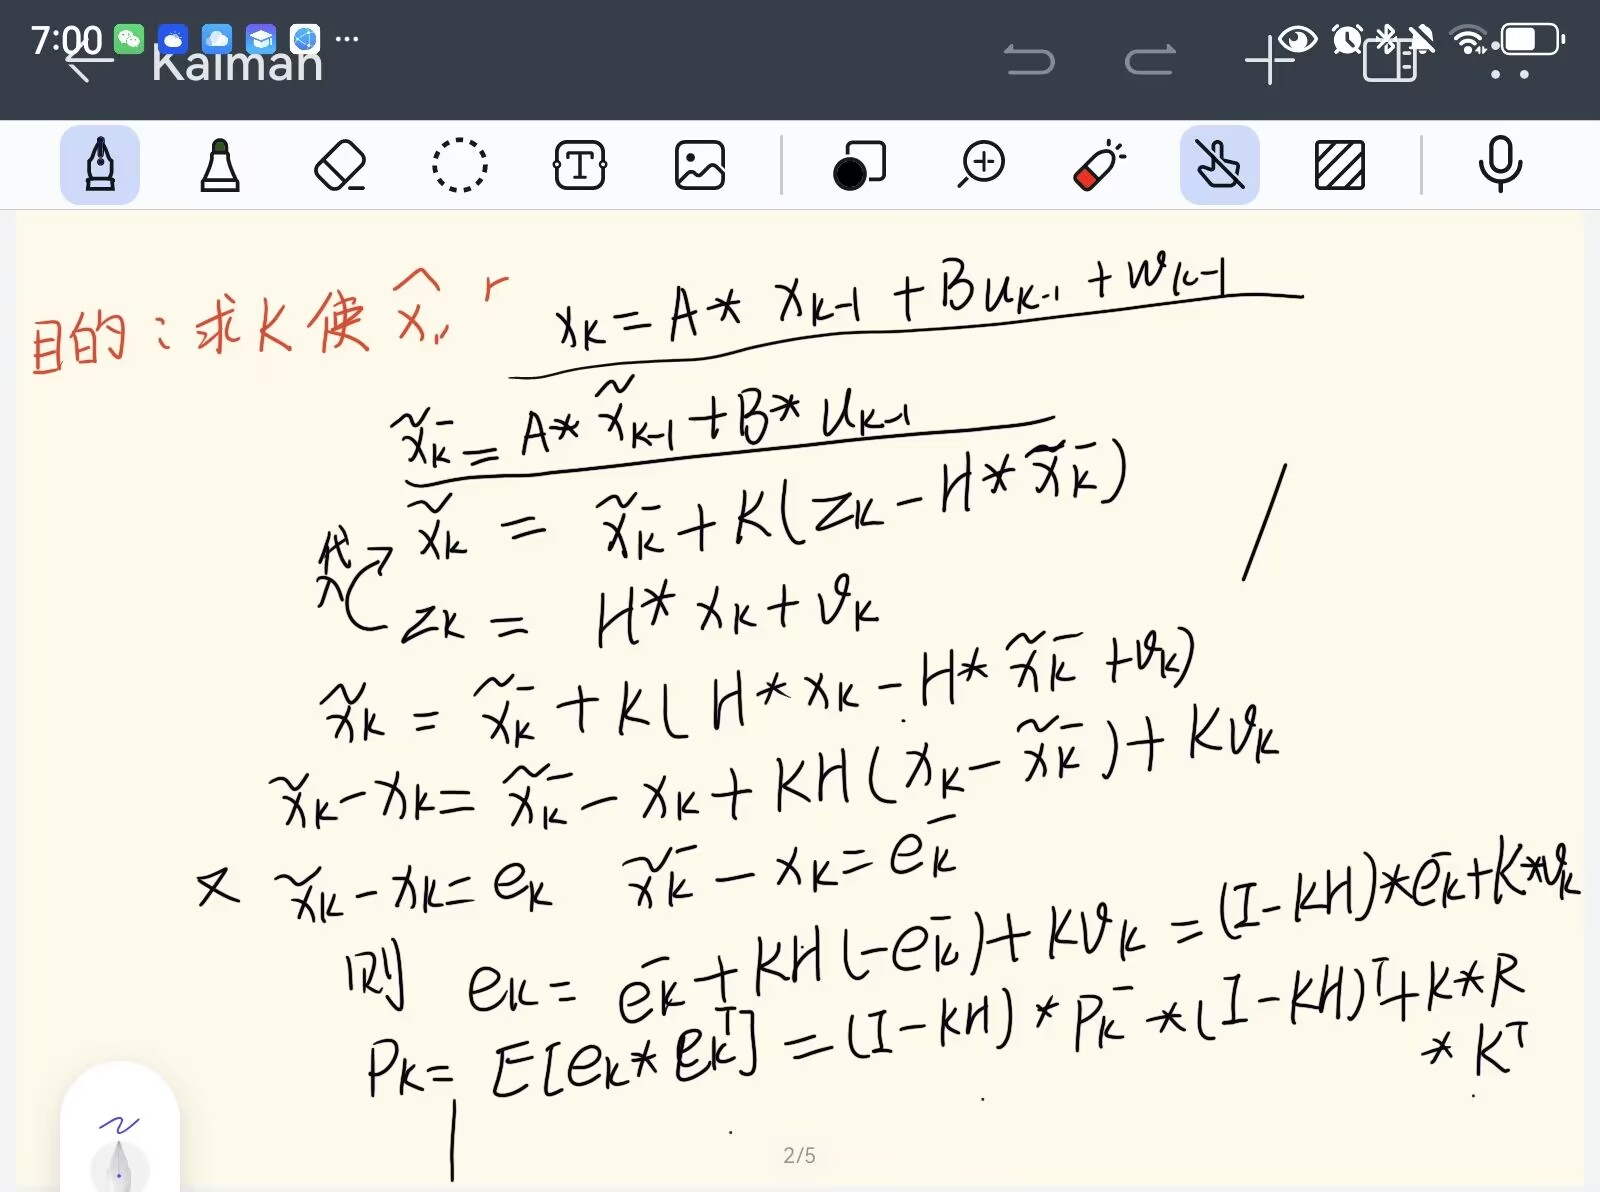 7:00
Kalman
目的：求K使 x̂
xₖ = A* xₖ₋₁ + Buₖ₋₁ + wₖ₋₁
x̃ₖ⁻ = A* x̃ₖ₋₁ + B* uₖ₋₁
x̃ₖ = x̃ₖ⁻ + K(zₖ - H* x̃ₖ⁻)
代入
zₖ = H* xₖ + vₖ
x̃ₖ = x̃ₖ⁻ + K(H* xₖ - H* x̃ₖ⁻ + vₖ)
x̃ₖ - xₖ = x̃ₖ⁻ - xₖ + KH(xₖ - x̃ₖ⁻) + Kvₖ
又 x̃ₖ - xₖ = eₖ x̃ₖ⁻ - xₖ = eₖ⁻
则 eₖ = eₖ⁻ + KH(-eₖ⁻) + Kvₖ = (I-KH)*eₖ⁻ + K*vₖ
Pₖ = E[eₖ* eₖᵀ] = (I-KH) * Pₖ⁻ * (I-KH)ᵀ + K*R
* Kᵀ
2/5